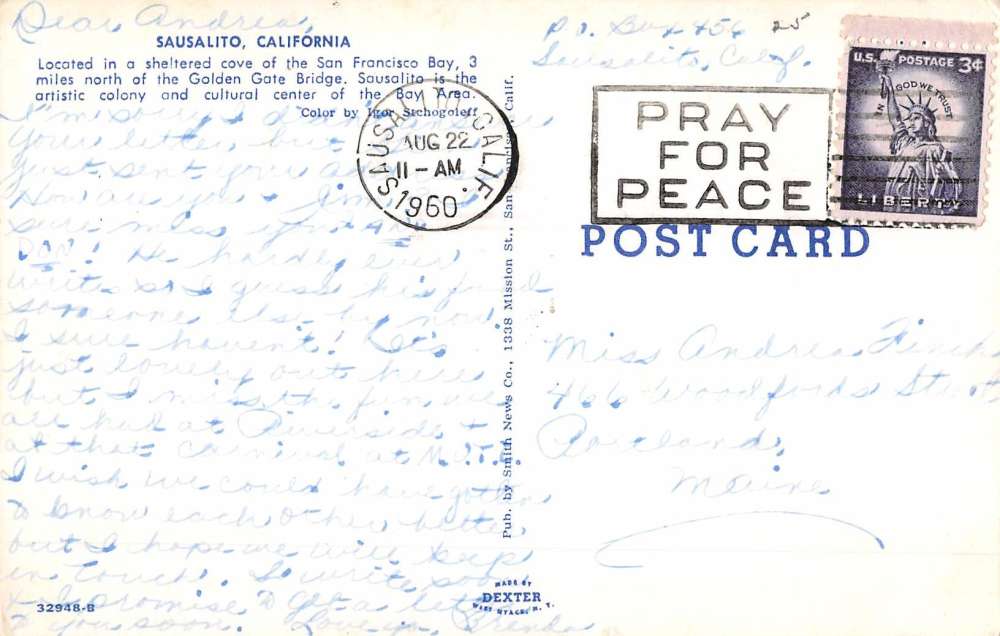 Dear Andrea,
SAUSALITO, CALIFORNIA
Located in a sheltered cove of the San Francisco Bay, 3
miles north of the Golden Gate Bridge. Sausalito is the
artistic colony and cultural center of the Bay Area.
Color by Igor Stchogoleff
I'm sorry I
your letter, but
just sent your
How are you? I'm
DAN! He hardly ever
writes so I guess he's found
someone else by now.
I sure haven't! It's
just lovely out here
but I miss the fun we
all had at Riverside +
at that carnival at
I wish we could have gotten
to know each other better
but I hope we will keep
in touch. I write soon
I promise to get a letter
to you soon. Love ya, Brenda
32948-B
Pub. by Smith News Co., 1338 Mission St., San Francisco, Calif.
MADE BY
DEXTER
WEST NYACK, N. Y.
P.O. Box 456
Sausalito, Calif.
25
SAUSALITO CALIF.
AUG 22
11-AM
1960
PRAY
FOR
PEACE
U.S. POSTAGE 3¢
IN GOD WE TRUST
LIBERTY
POST CARD
Miss Andrea Finch
466 Woodfords Street
Portland,
Maine